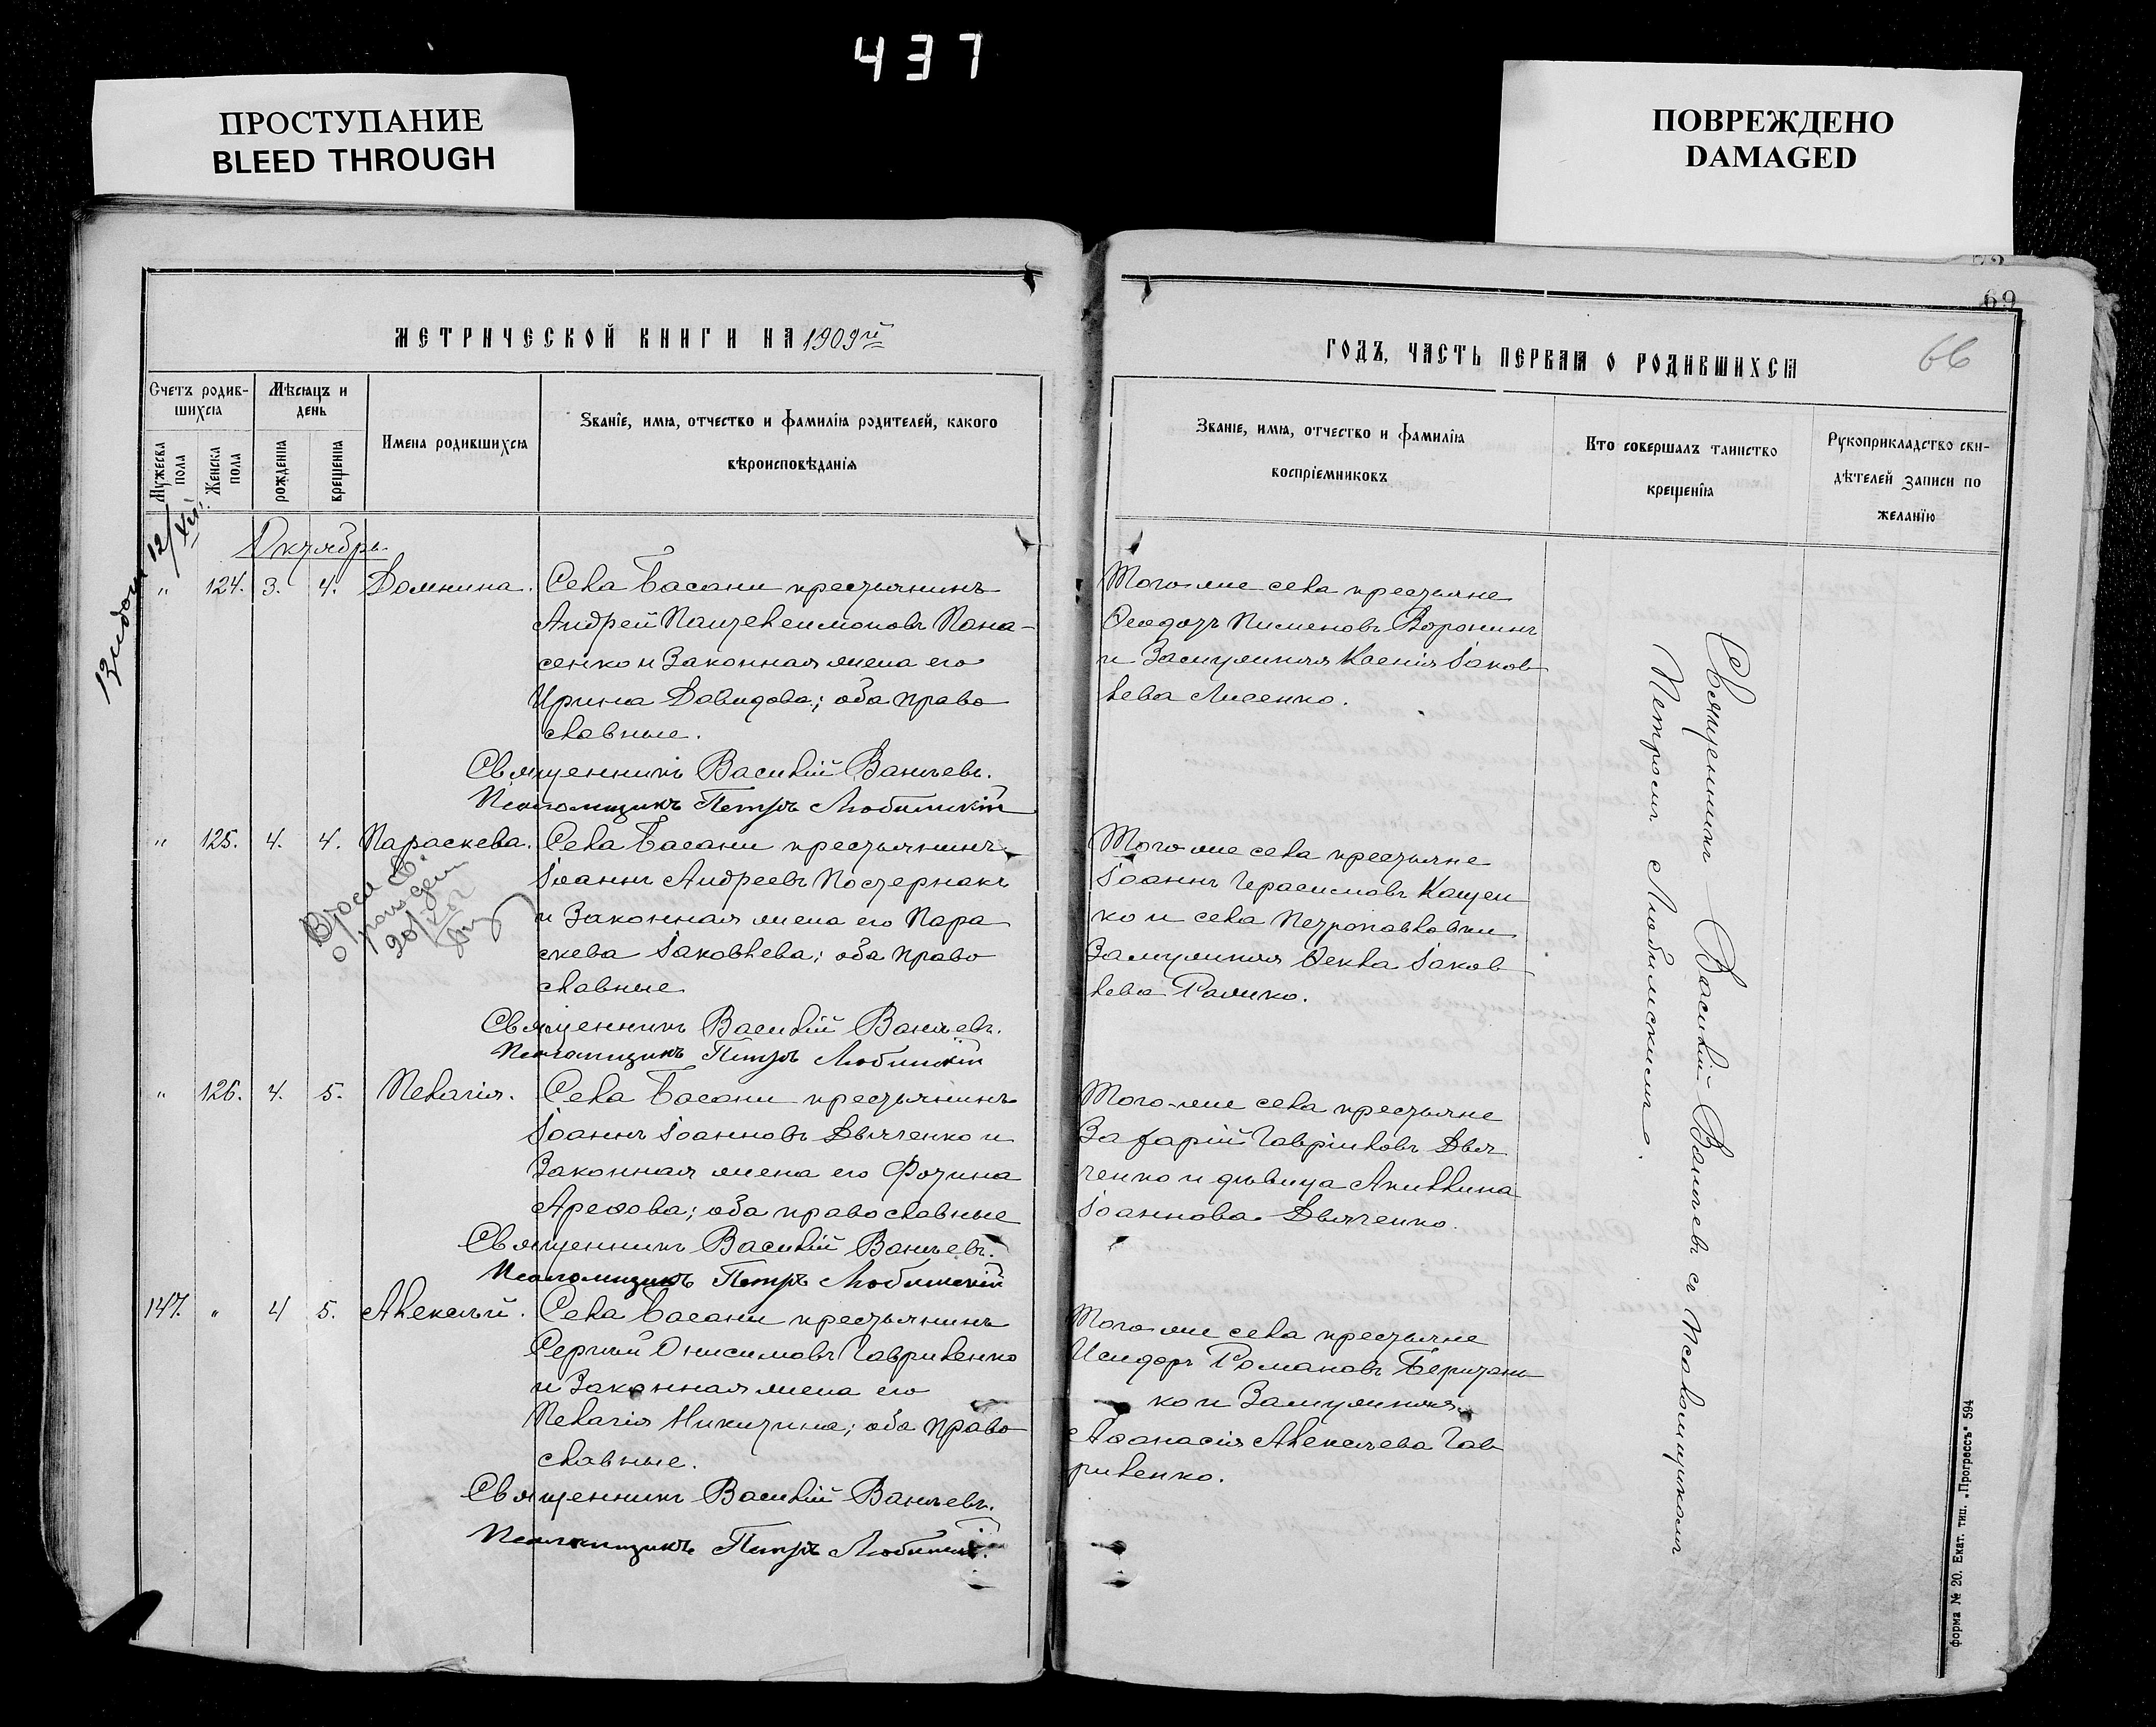 437
ПРОСТУПАНИЕ
BLEED THROUGH
ПОВРЕЖДЕНО
DAMAGED
МЕТРИЧЕСКОЙ КНИГИ НА 1909й
Счетъ родив-
шихся
Мѣсяцъ и
день
Имена родившихся
Званіе, имя, отчество и фамилія родителей, какого
вѣроисповѣданія
Мужеска
пола
Женска
пола
рожденія
крещенія
12/XII
Октябрь.
" 124. 3. 4. Домнина. Села Басани крестьянинъ
Андрей Пантелеимоновъ Пана-
сенко и законная жена его
Ирина Давидова; оба право
славные.
Священникъ Василій Ваничевъ.
Псаломщикъ Петръ Любимскій
" 125. 4. 4. Параскева. Села Басани крестьянинъ
Іоаннъ Андреевъ Постернакъ
и законная жена его Пара
скева Іаковлева; оба право
славные
20/
Священникъ Василій Ваничевъ.
Псаломщикъ Петръ Любимскій
" 126. 4. 5. Пелагія. Села Басани крестьянинъ
Іоаннъ Іоанновъ Дьяченко и
законная жена его Фотина
Арефова; оба православные
Священникъ Василій Ваничевъ.
Псаломщикъ Петръ Любимскій
147. " 4 5. Алексѣй. Села Басани крестьянинъ
Сергій Онисимовъ Гавриленко
и законная жена его
Пелагія Никитина; оба право
славные.
Священникъ Василій Ваничевъ.
Псаломщикъ Петръ Любимскій.
69
66
ГОДЪ, ЧАСТЬ ПЕРВАЯ О РОДИВШИХСЯ
Званіе, имя, отчество и фамилія
воспріемниковъ
Кто совершалъ таинство
крещенія
Рукоприкладство сви-
дѣтелей записи по
желанію
Того-же села крестьяне
Ѳеодотъ Пименовъ Воронинъ
и замужняя Ксенія Іаков
лева Лисенко.
Того же села крестьяне
Іоаннъ Герасимовъ Кащен
ко и села Петропавловки
замужняя Ѳекла Іаков
лева
Того-же села крестьяне
Захарій Гавріиловъ Дья
ченко и дѣвица Акиллина
Іоаннова Дьяченко.
Того же села крестьяне
Исидоръ Романовъ
ко и замужняя
Аѳанасія Алексѣева Гав
риленко.
Священникъ Василій Ваничевъ съ псаломщикомъ
Петромъ Любимскимъ.
форма № 20. Екат. тип. „Прогрессъ" 594